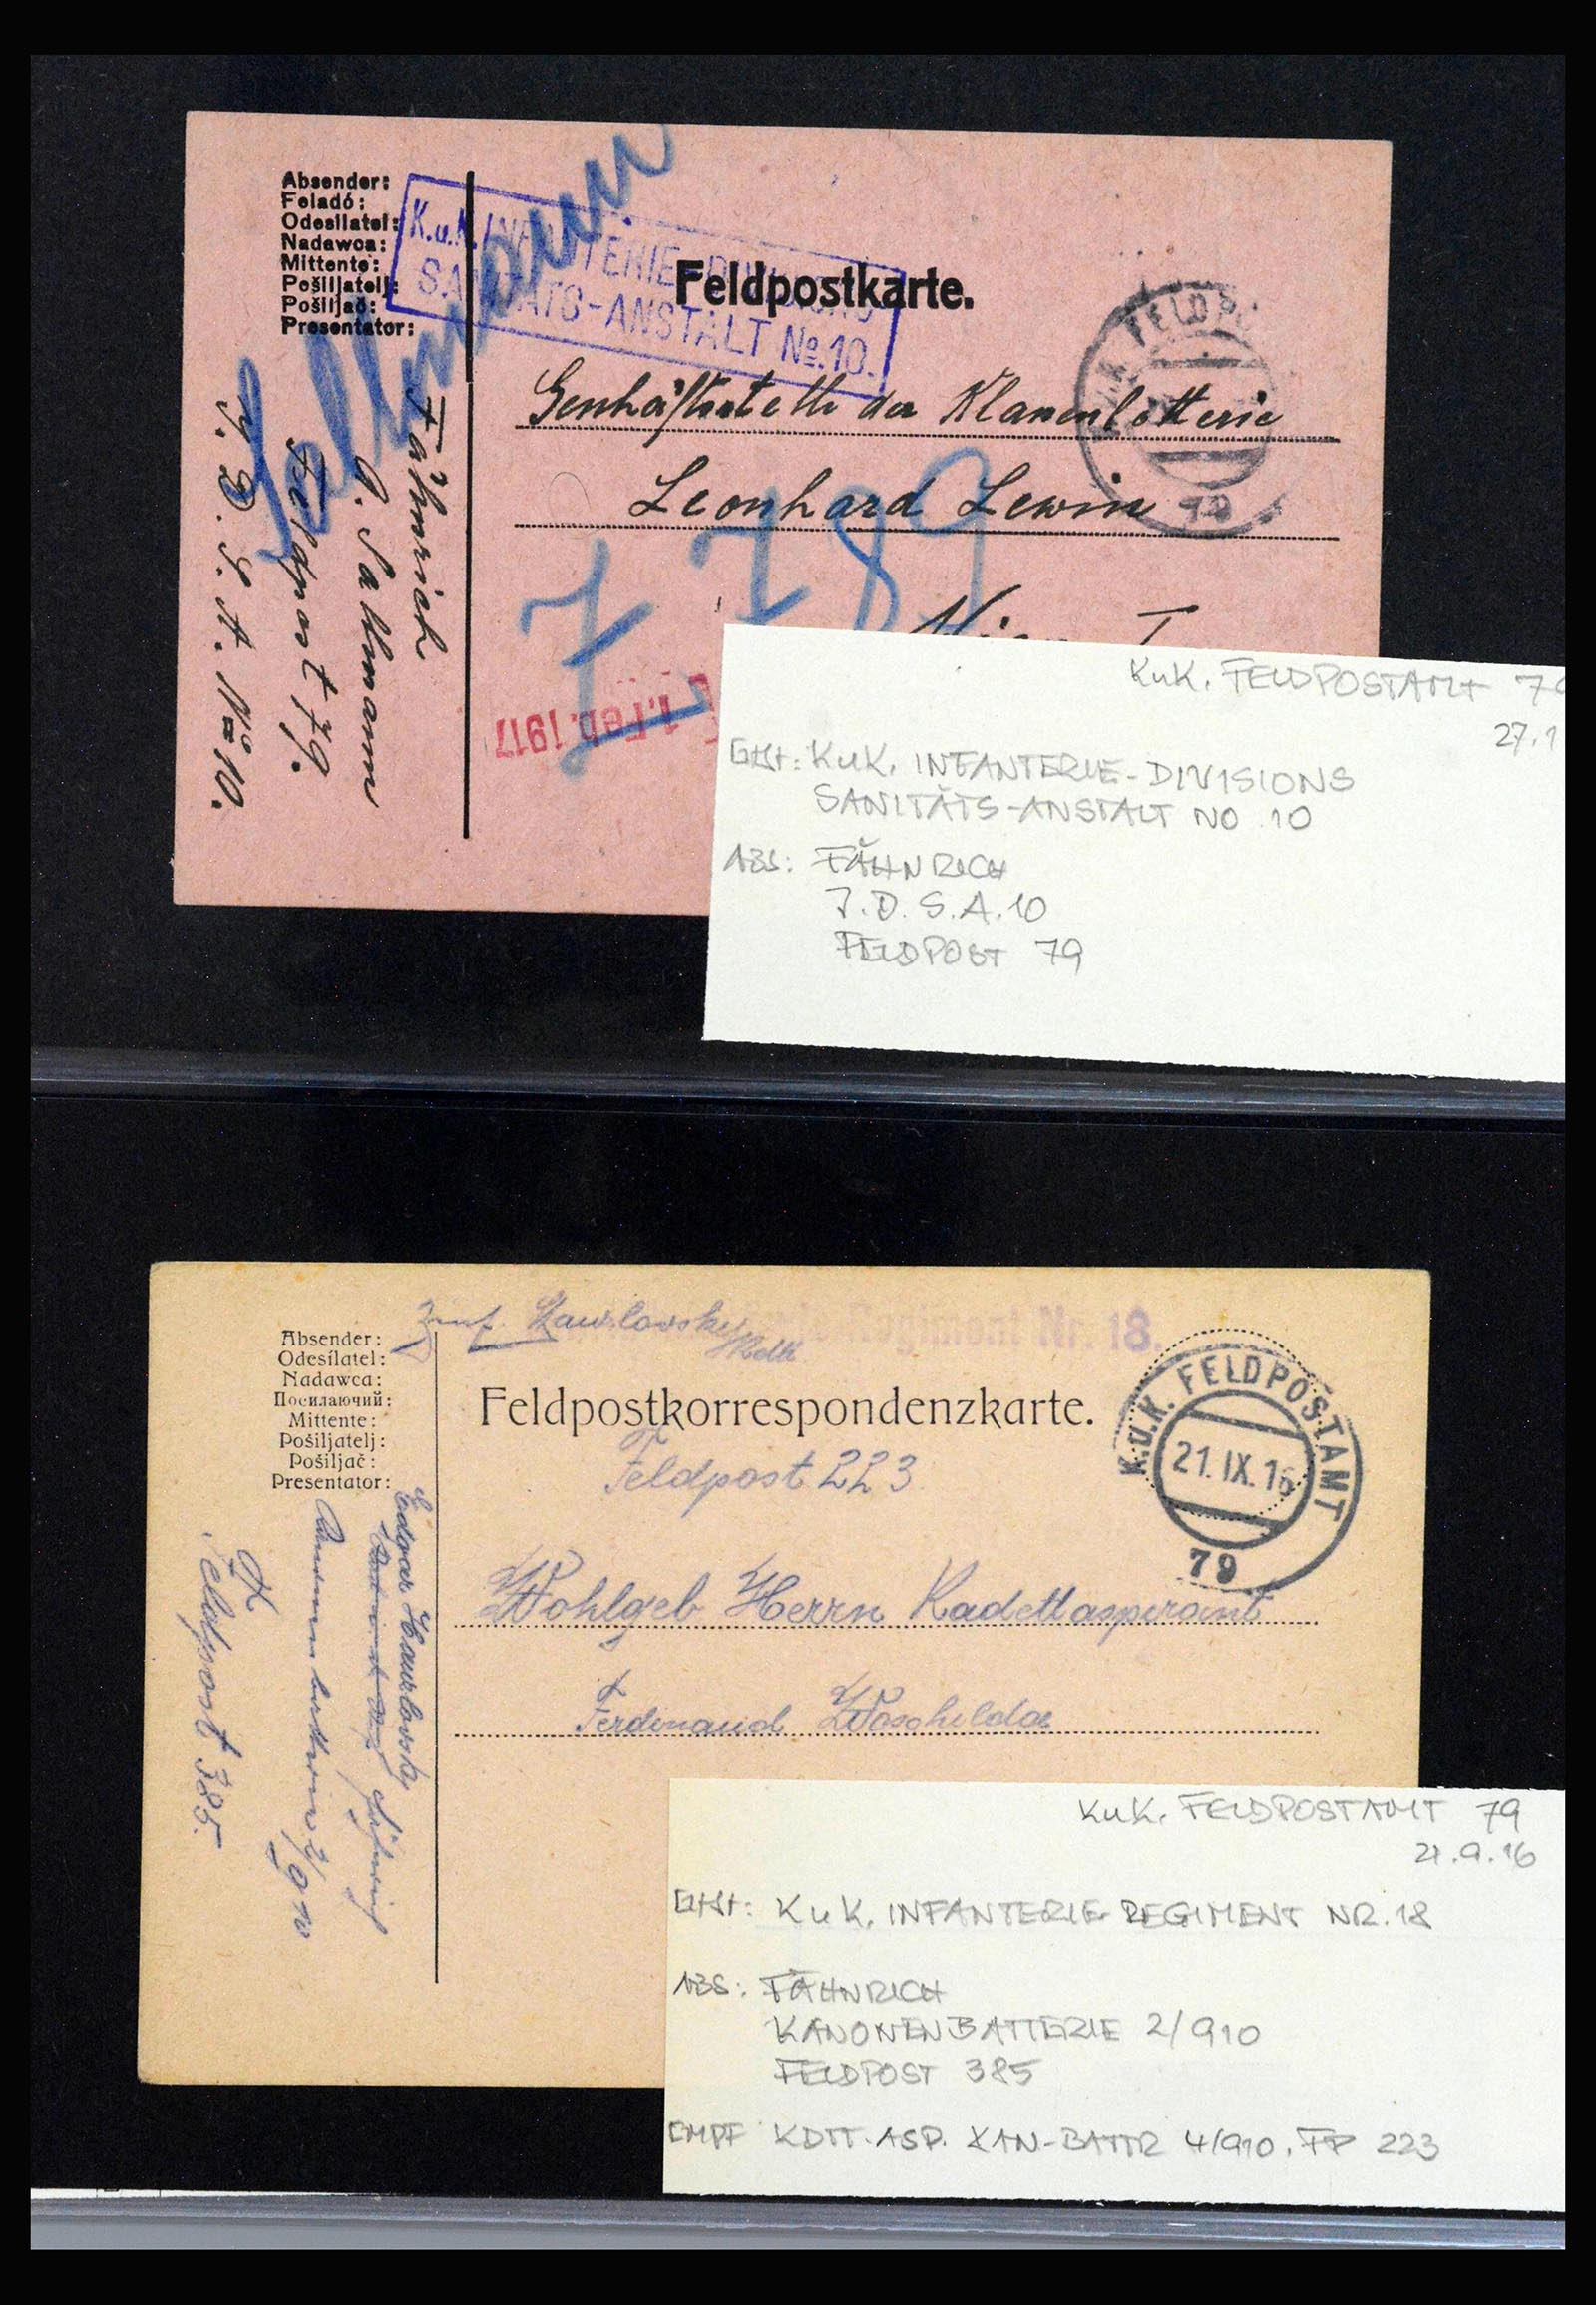 Absender:
Feladó:
Odesílatel:
Nadawca:
Mittente:
Pošiljatelj:
Pošiljač:
Presentator:
K.u.K. INFANTERIE-DIVISIONS
SANITÄTS-ANSTALT No. 10.
Feldpostkarte.
K.u.K. FELDPO
79
Geschäftsstelle der Klassenlotterie
Leonhard Lewin
Wien I
7789
1. Feb. 1917
Fähnrich
Sallmann
Feldpost 79.
J. D. S. A. No 10.
KuK. FELDPOSTAMT 79
27.1
KuK. INFANTERIE-DIVISIONS
SANITÄTS-ANSTALT NO 10
ABS: FÄHNRICH
J.D.S.A.10
FELDPOST 79
Absender:
Odesílatel:
Nadawca:
Посилаючий:
Mittente:
Pošiljatelj:
Pošiljač:
Presentator:
Regiment Nr. 18.
Feldpostkorrespondenzkarte.
K.u.K. FELDPOSTAMT
21. IX. 16
79
Feldpost 223
Wohlgeb Herrn Kadettaspirant
Ferdinand
Fähnrich
Kanonenbatterie 2/910
Feldpost 385.
KuK. FELDPOSTAMT 79
21.9.16
KuK. INFANTERIE-REGIMENT NR. 18
ABS: FÄHNRICH
KANONENBATTERIE 2/910
FELDPOST 385
EMPF KDTT.ASP. KAN-BATTR 4/910. FP 223